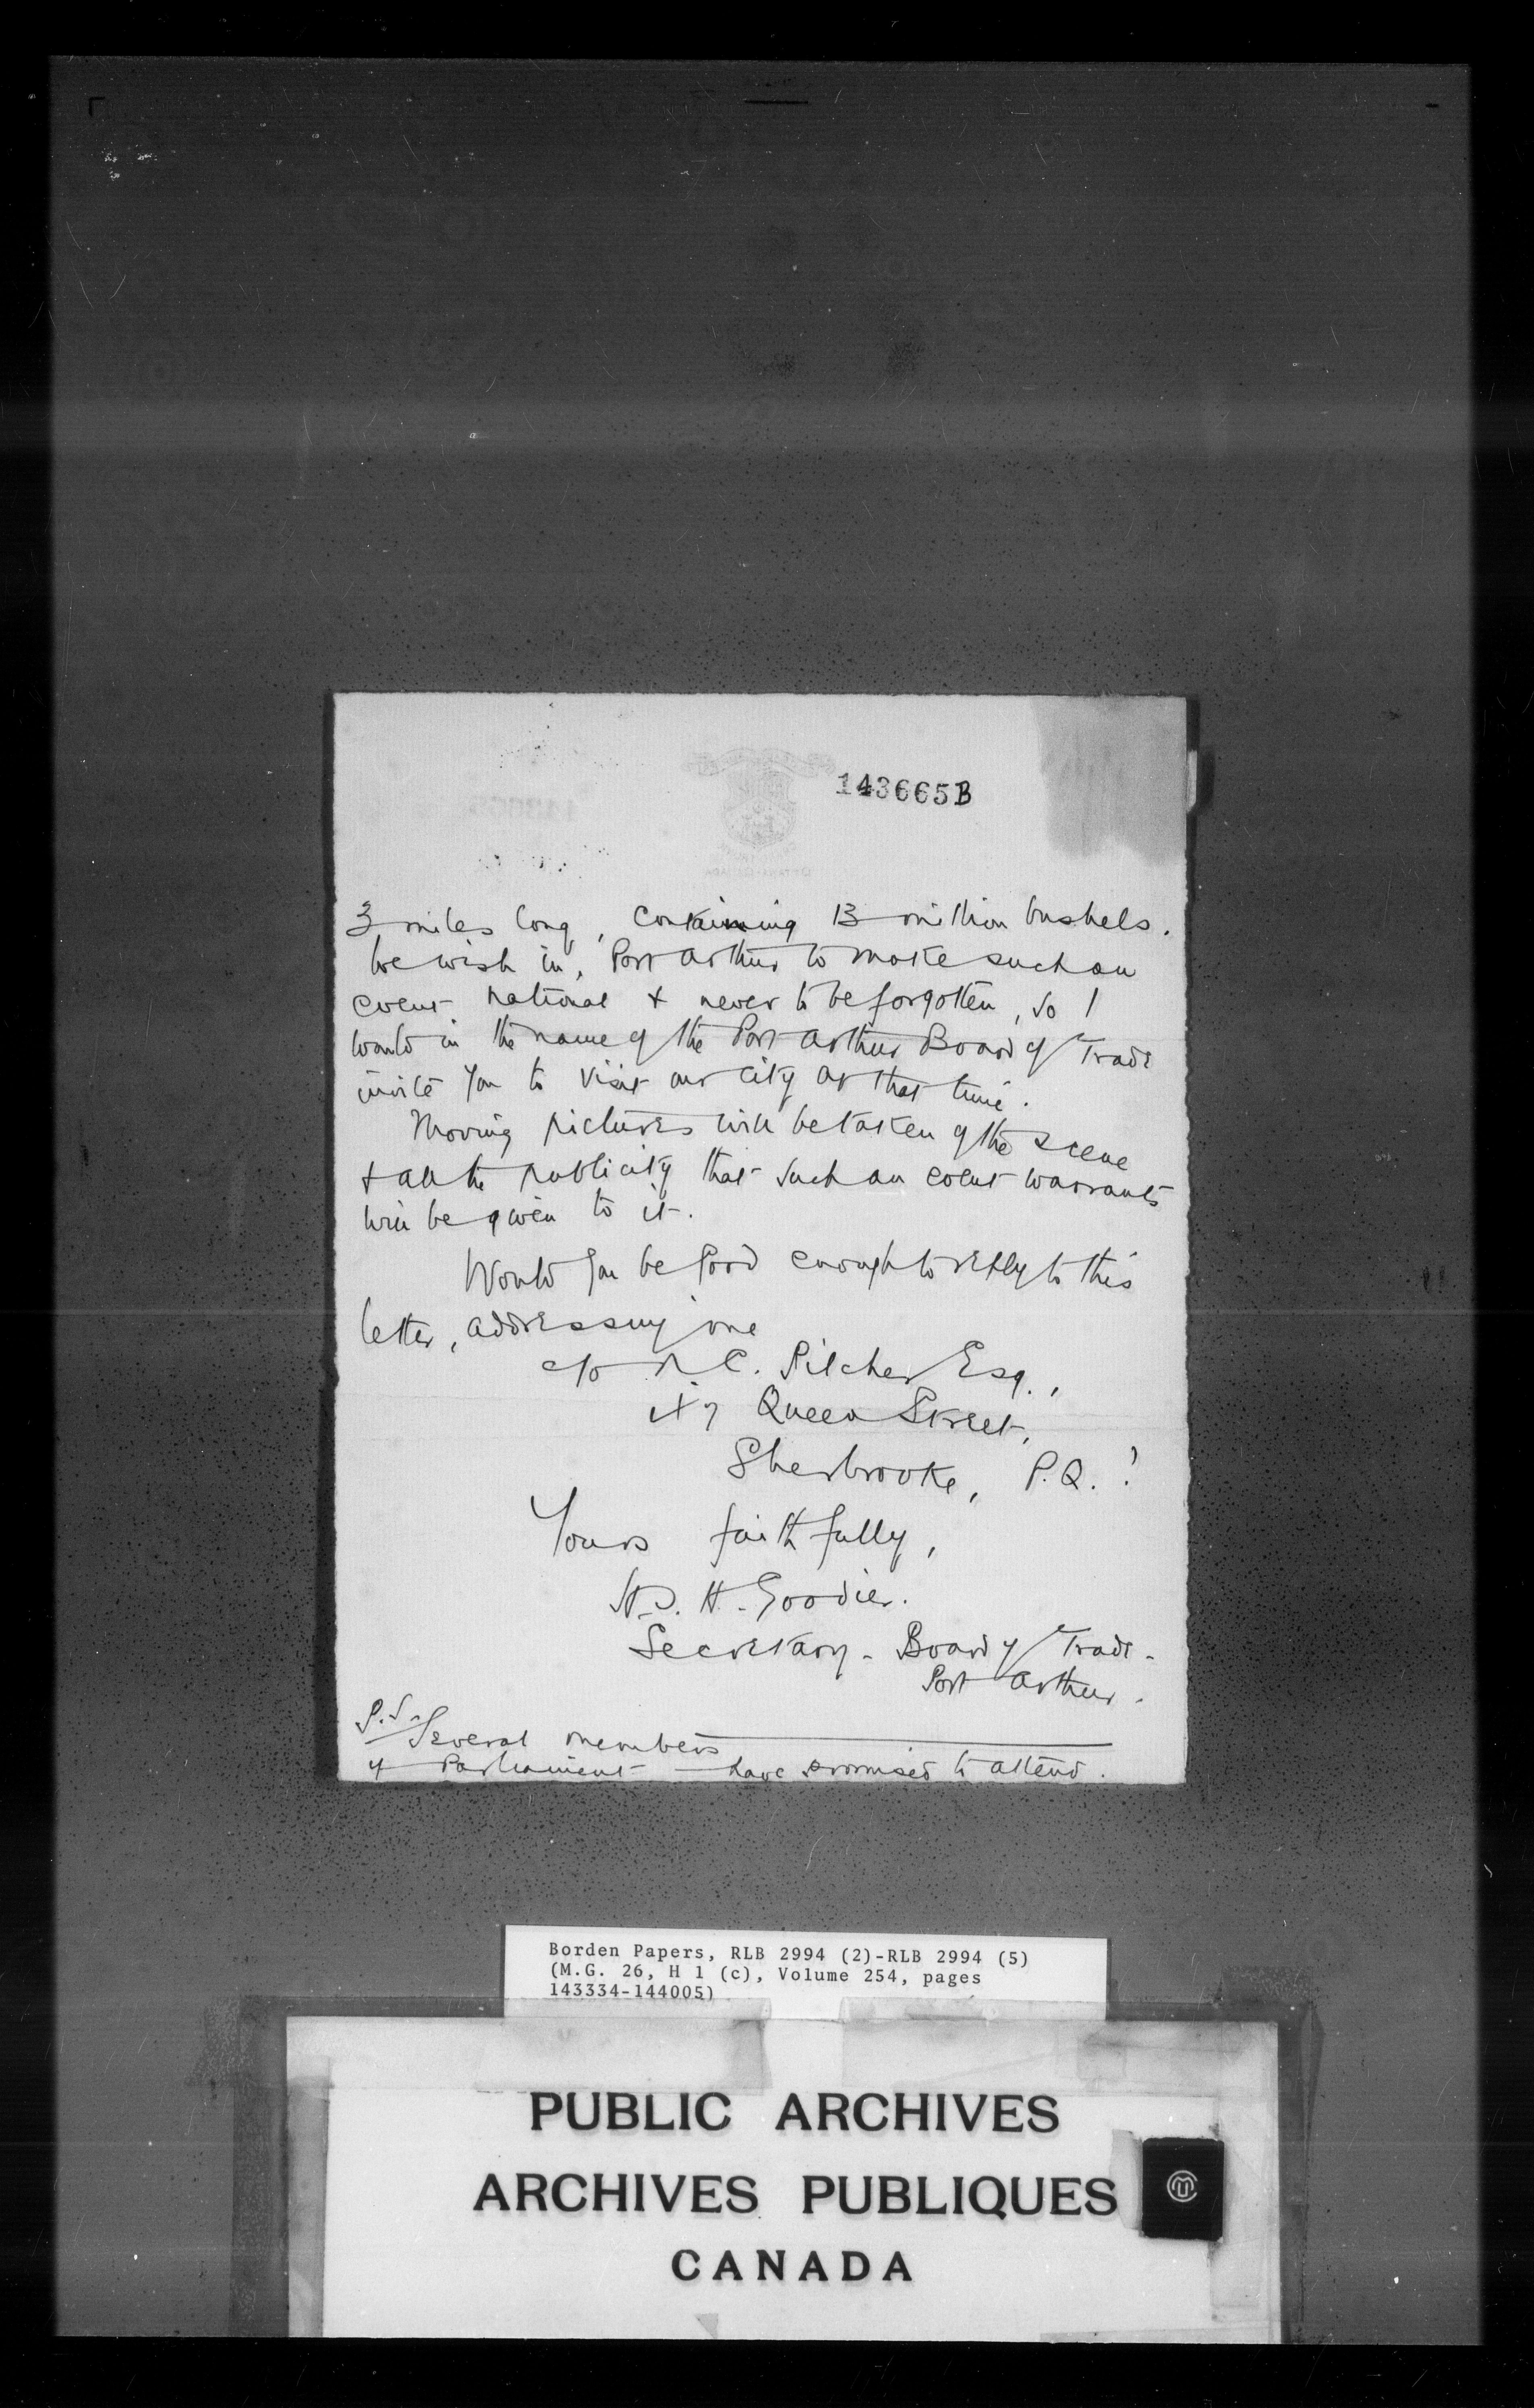 143665B
3 miles long, containing 13 million bushels.
We wish in, Port Arthur to make such an
event national & never to be forgotten, so I
would in the name of the Port Arthur Board of Trade
invite you to visit our city at that time.
Moving pictures will be taken of the scene
& all the publicity that such an event warrants
will be given to it.
Would you be good enough to reply to this
letter, addressing me
c/o C. Pilcher Esq.,
Queen Street,
Sherbrooke, P.Q.?
Yours faithfully,
H. Goodier.
Secretary - Board of Trade -
Port Arthur.
P.S. Several members
of Parliament — have promised to attend.
Borden Papers, RLB 2994 (2)-RLB 2994 (5)
(M.G. 26, H 1 (c), Volume 254, pages
143334-144005)
PUBLIC ARCHIVES
ARCHIVES PUBLIQUES
CANADA